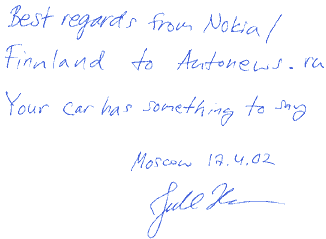 Best regards from Nokia/
Finnland to Autonews.ru
Your car has something to say
Moscow 17.4.02